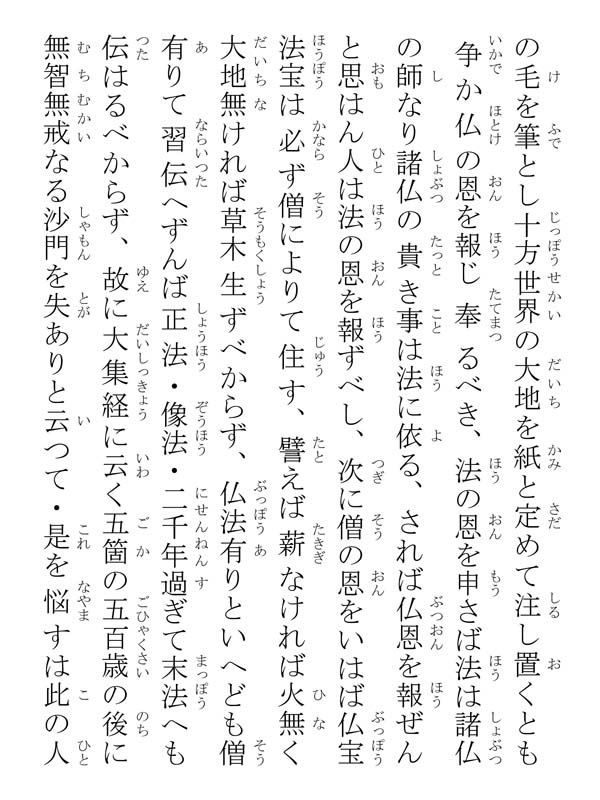 の毛を筆とし十方世界の大地を紙と定めて注し置くとも
争か仏の恩を報じ奉るべき、法の恩を申さば法は諸仏
の師なり諸仏の貴き事は法に依る、されば仏恩を報ぜん
と思はん人は法の恩を報ずべし、次に僧の恩をいはば仏宝
法宝は必ず僧によりて住す、譬えば薪なければ火無く
大地無ければ草木生ずべからず、仏法有りといへども僧
有りて習伝へずんば正法・像法・二千年過ぎて末法へも
伝はるべからず、故に大集経に云く五箇の五百歳の後に
無智無戒なる沙門を失ありと云つて・是を悩すは此の人